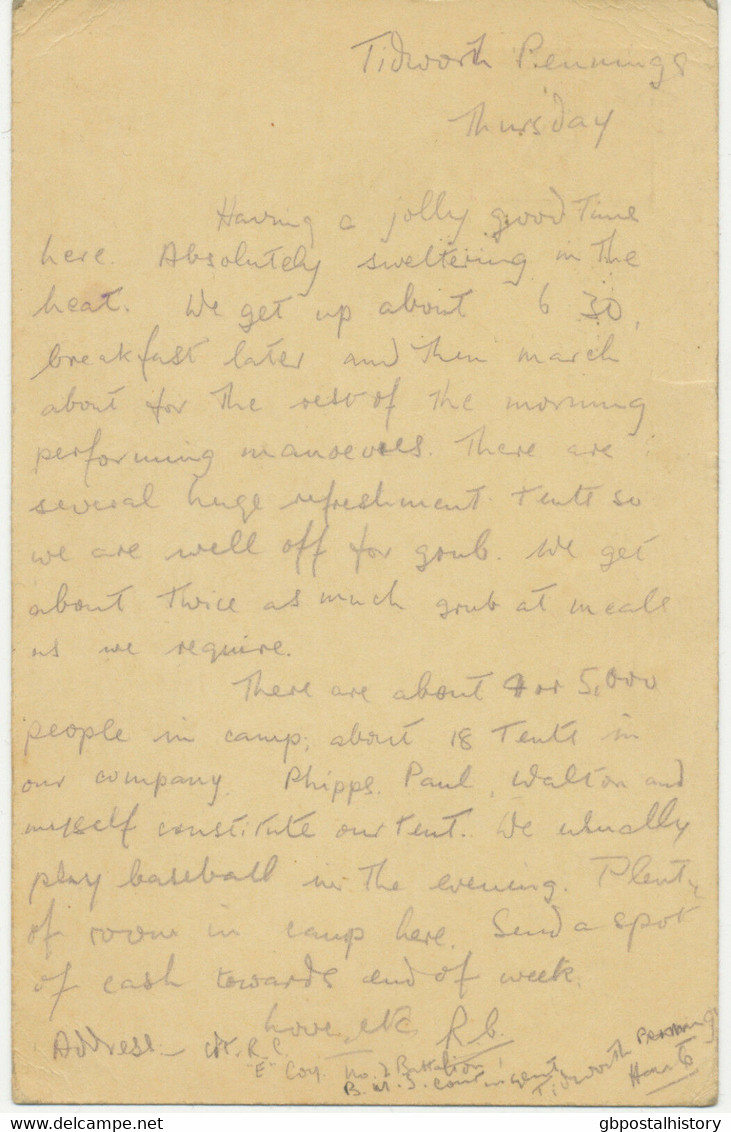 Tidworth Pennings
Thursday
Having a jolly good time
here. Absolutely sweltering in the
heat. We get up about 6 30,
breakfast later and then march
about for the rest of the morning
performing manoevres. There are
several huge refreshment tents so
we are well off for grub. We get
about twice as much grub at meals
as we require.
There are about 4 or 5,000
people in camp, about 18 tents in
our company. Phipps, Paul, Walton and
myself constitute our tent. We usually
play baseball in the evening. Plenty
of room in camp here. Send a spot
of cash towards end of week.
Love, etc. R.C.
Address - R.C.
E Coy. No. 2 Battalion
B. M. S. contingent
Tidworth Pennings
Hants
© gbpostalhistory